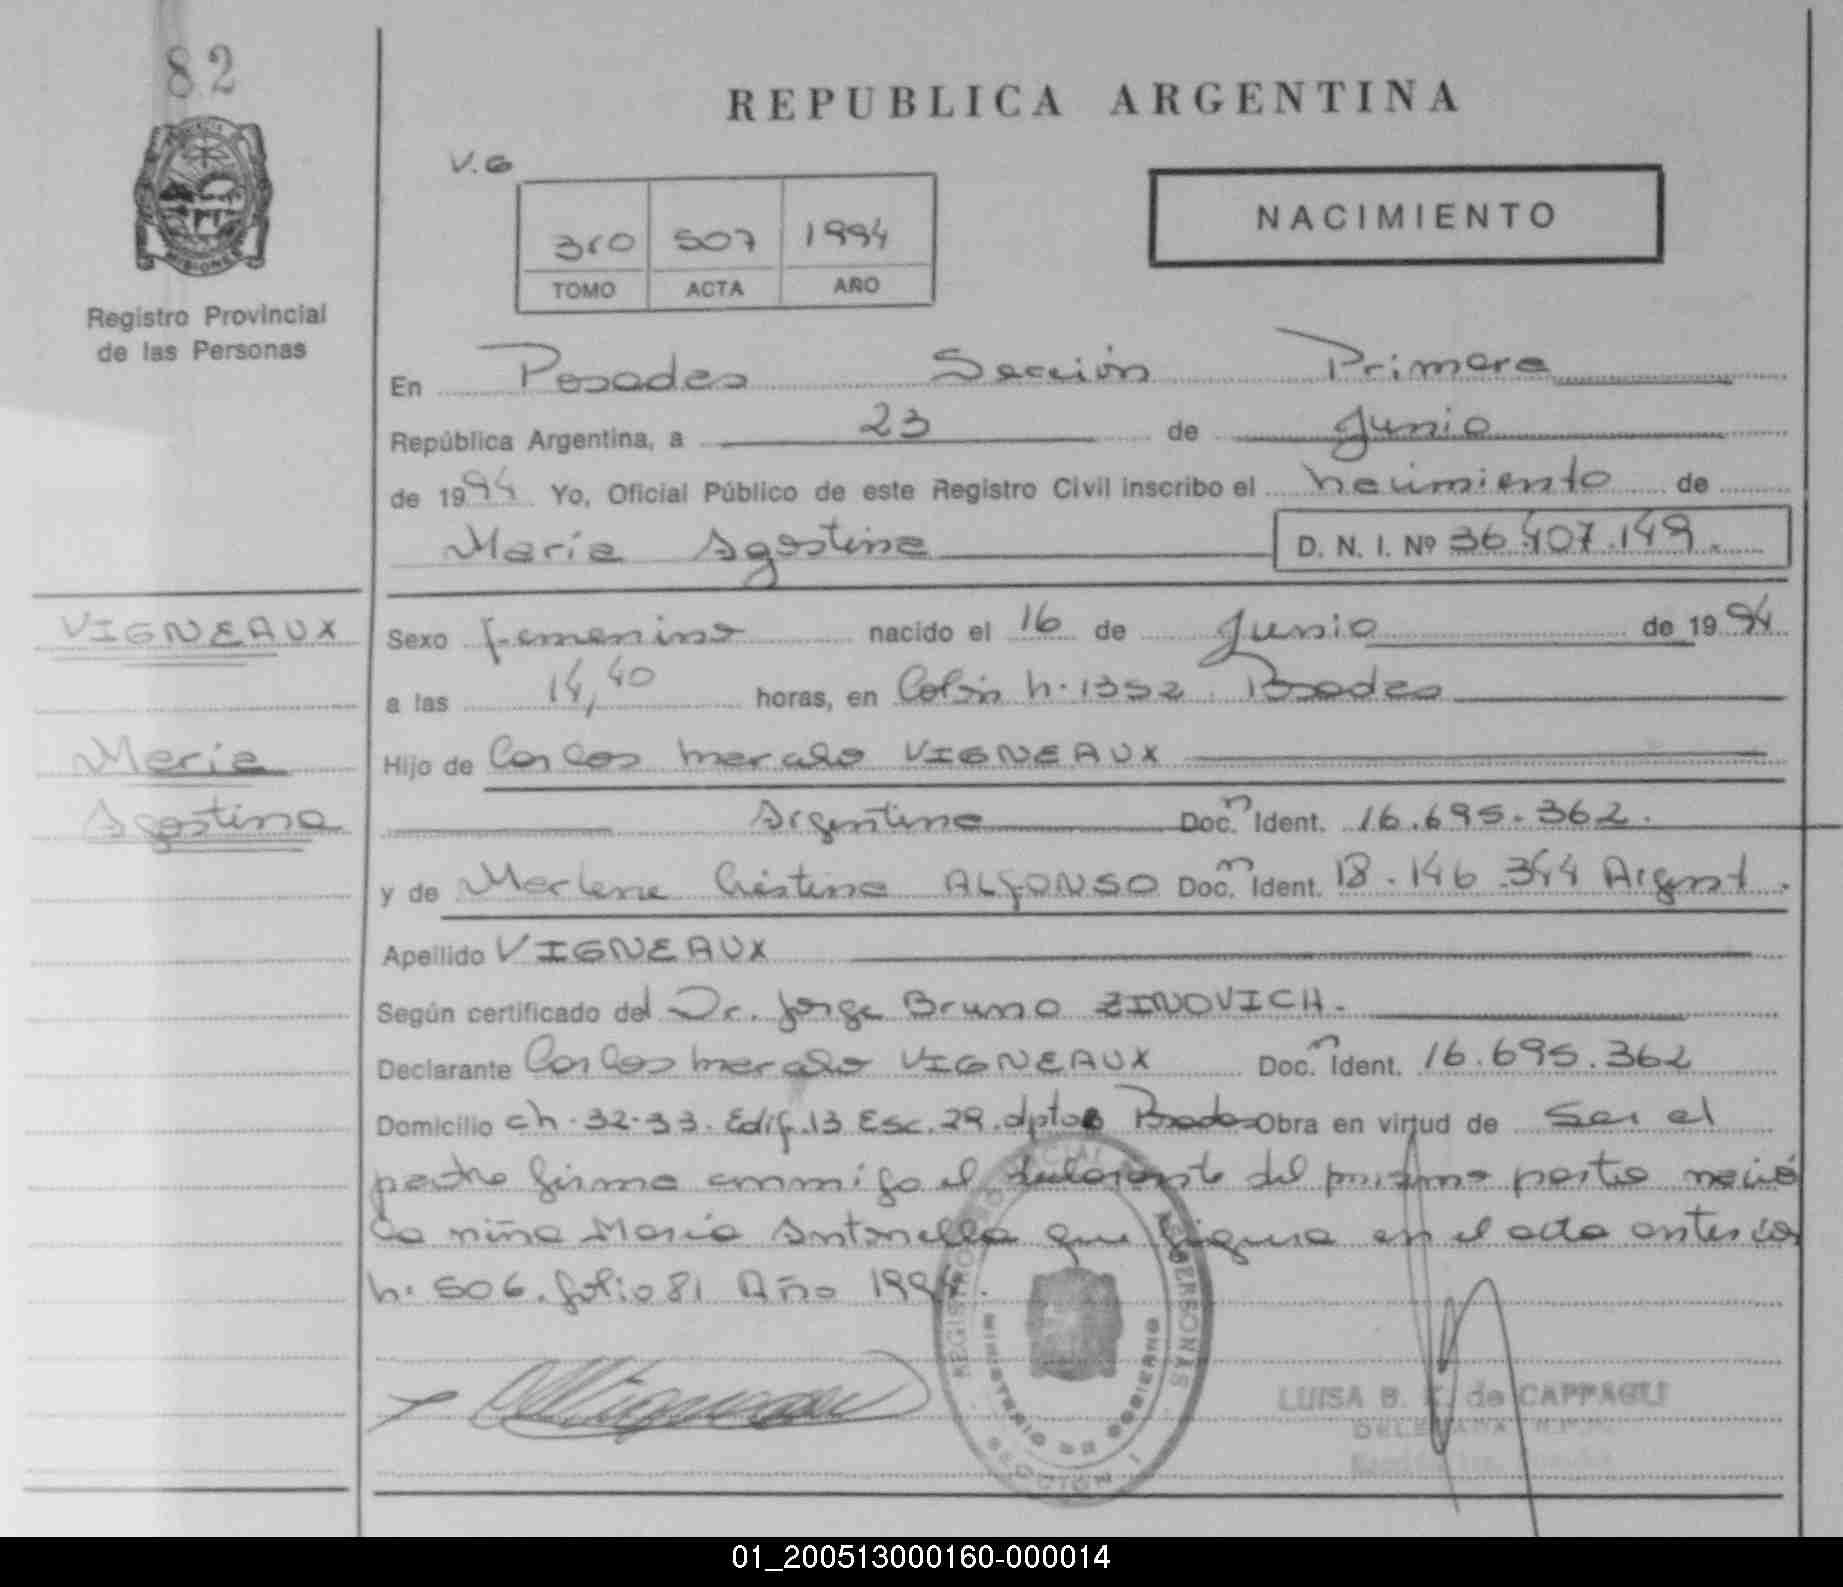 82
REPUBLICA ARGENTINA
V.G
MISIONES
310 507 1994
TOMO ACTA AÑO
NACIMIENTO
Registro Provincial
de las Personas
En Posadas Sección Primera
República Argentina, a 23 de Junio
de 1994 Yo, Oficial Público de este Registro Civil inscribo el nacimiento de
María Agostina D. N. I. Nº 36.407.149.
VIGNEAUX
Sexo femenino nacido el 16 de Junio de 1994
a las 14,40 horas, en Colón n. 1352. Posadas
María
Agostina
Hijo de Carlos Marcelo VIGNEAUX
Argentino Doc. n Ident. 16.695.362.
y de Marlene Cristina ALFONSO Doc. n Ident. 18.146.344 Argent.
Apellido VIGNEAUX
Según certificado del Dr. Jorge Bruno ZINOVICH.
Declarante Carlos Marcelo VIGNEAUX Doc. n Ident. 16.695.362
Domicilio ch. 32-33. Edif. 13 Esc. 29. dpto Posadas Obra en virtud de ser el
padre firma conmigo el declarante del mismo parto nació
la niña María Antonella que figura en el acta anterior
n: 506. folio 81 Año 1994.
REGISTRO PERSONAS
MINISTERIO DE GOBIERNO
SECCION 1
LUISA B. de CAPPAGLI
DELEGADA
01_200513000160-000014